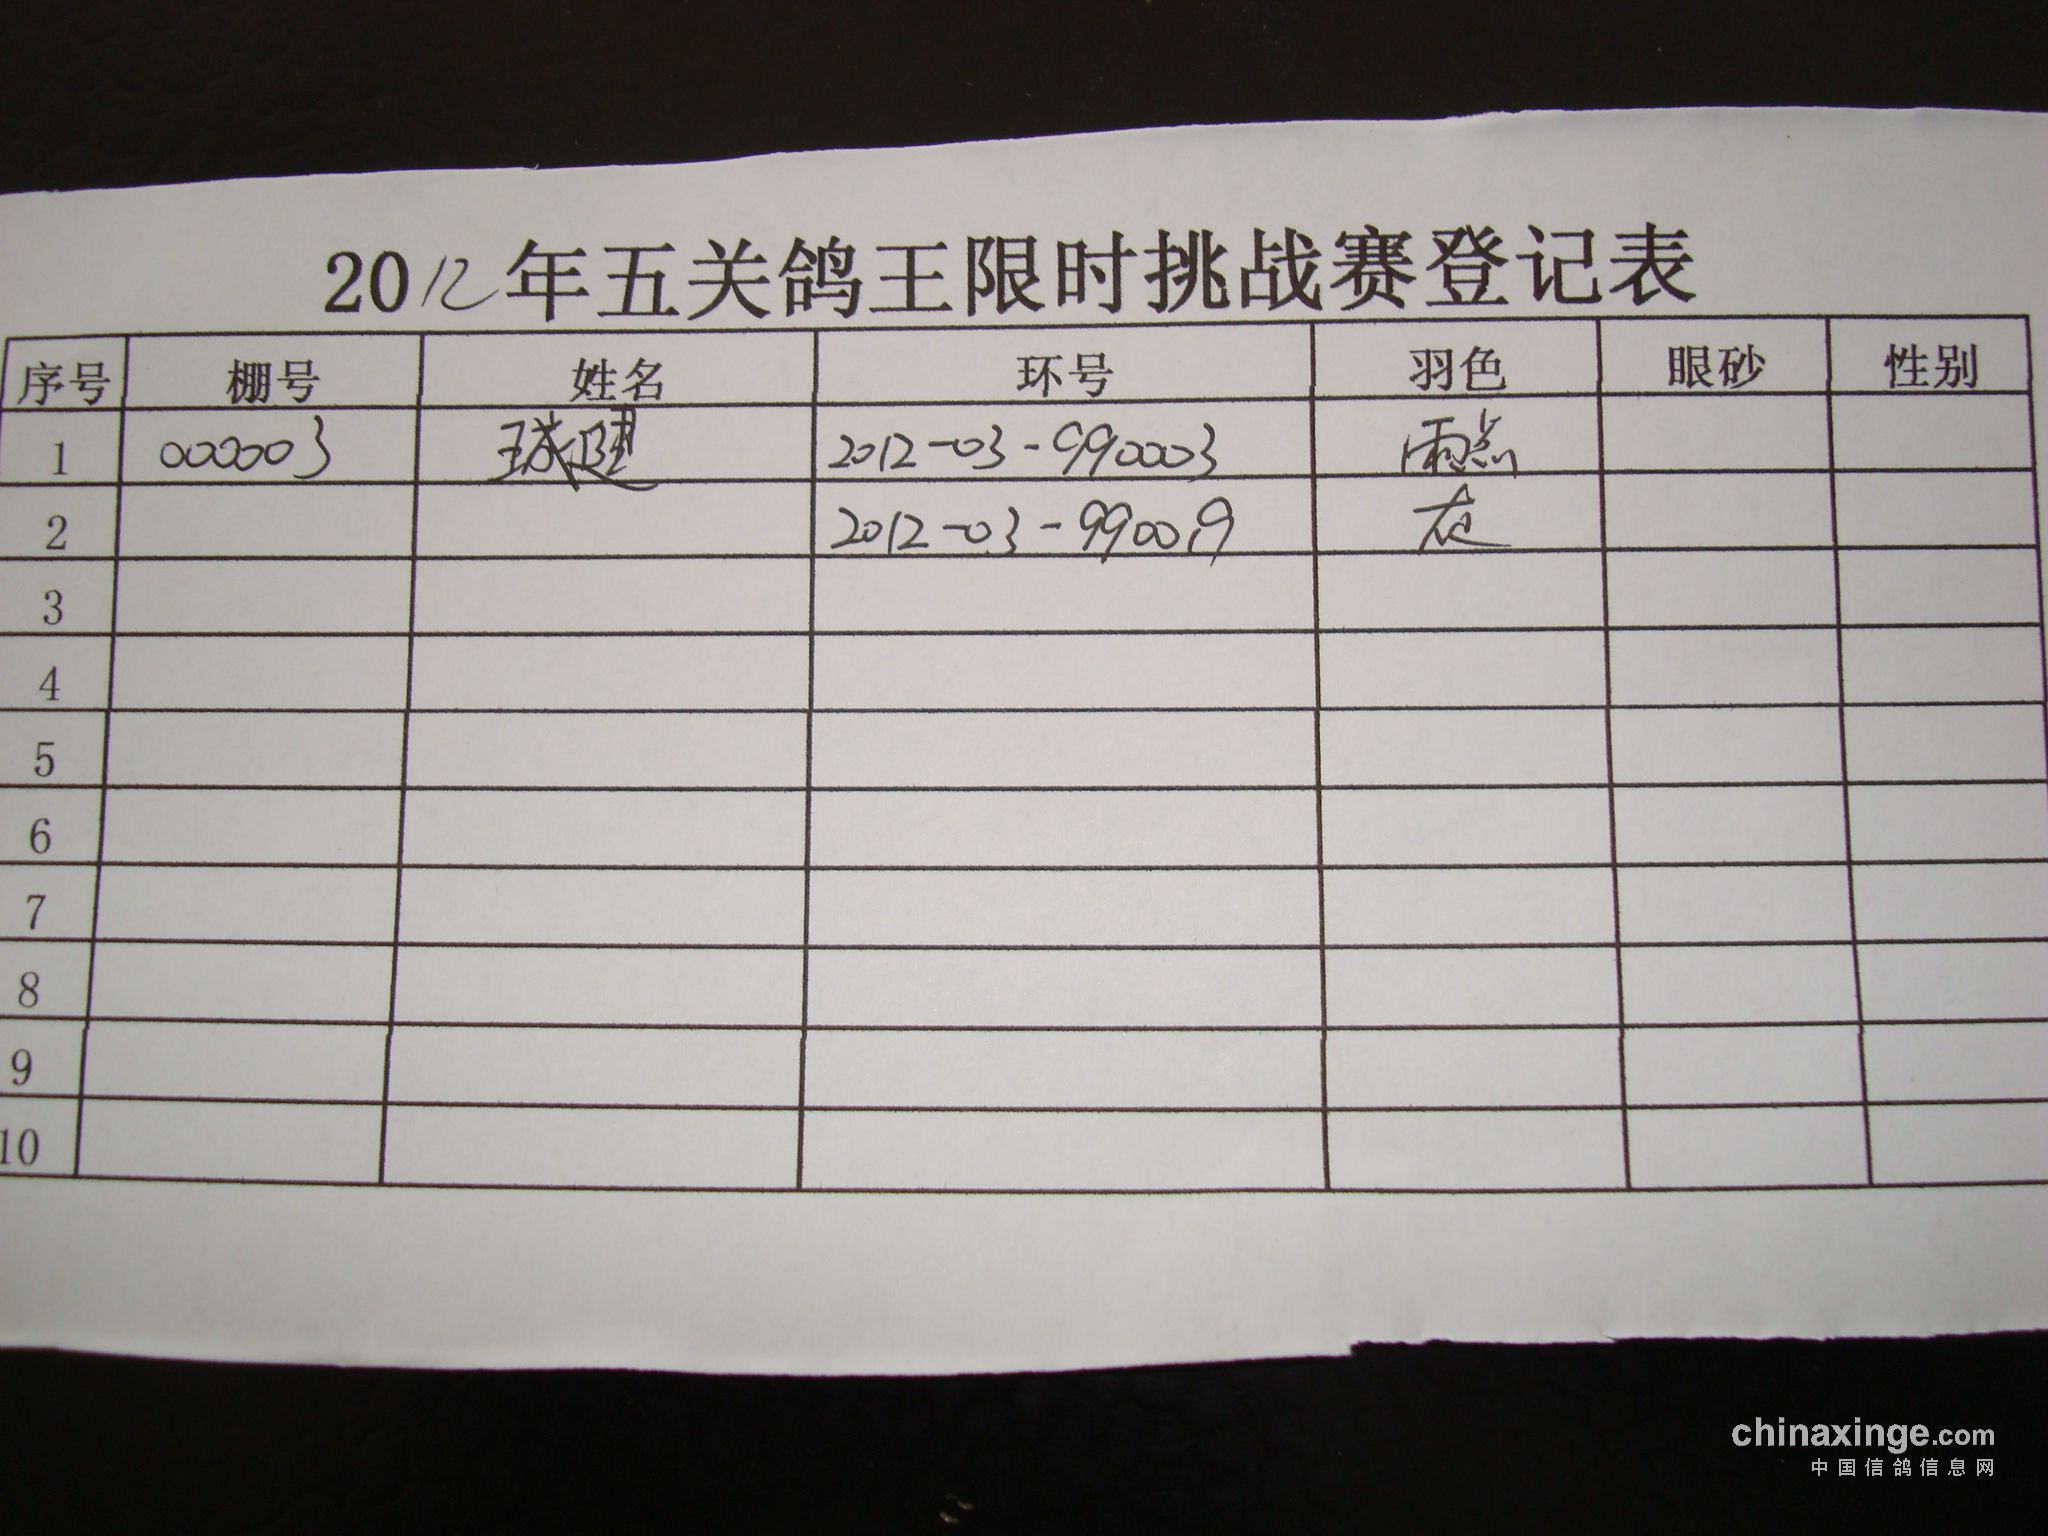 2012年五关鸽王限时挑战赛登记表
序号 棚号 姓名 环号 羽色 眼砂 性别
1 000003 球健 2012-03-990003 雨点
2 2012-03-990019 灰
3
4
5
6
7
8
9
10
chinaxinge.com
中国信鸽信息网